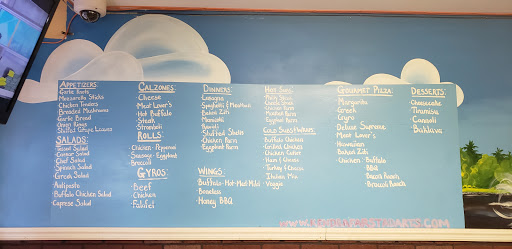 APPETIZERS
Garlic Knots
Mozzarella Sticks
Chicken Tenders
Breaded Mushrooms
Garlic Bread
Onion Rings
Stuffed Grape Leaves
SALADS:
Tossed Salad
Caesar Salad
Chef Salad
Spinach Salad
Greek Salad
Antipasto
Buffalo Chicken Salad
Caprese Salad
CALZONES:
Cheese
Meat Lover's
Hot Buffalo
Steak
Stromboli
ROLLS:
Chicken - Pepperoni
Sausage - Eggplant
Broccoli
GYROS:
Beef
Chicken
Falafel
DINNERS:
Lasagna
Spaghetti & Meatball
Baked Ziti
Manicotti
Ravioli
Stuffed Shells
Chicken Parm
Eggplant Parm
WINGS:
Buffalo - Hot - Med - Mild
Boneless
Honey BBQ
HOT SUBS:
Philly Steak
Chicken Parm
Meatball Parm
Eggplant Parm
COLD SUBS/WRAPS:
Buffalo Chicken
Grilled Chicken
Chicken Caesar
Ham & Cheese
Turkey & Cheese
Italian Mix
Veggie
GOURMET PIZZA:
Margarita
Greek
Gyro
Deluxe Supreme
Meat Lover's
Hawaiian
Baked Ziti
Chicken: Buffalo
BBQ
Bacon Ranch
Broccoli Ranch
DESSERTS:
Cheesecake
Tiramisu
Cannoli
Baklava